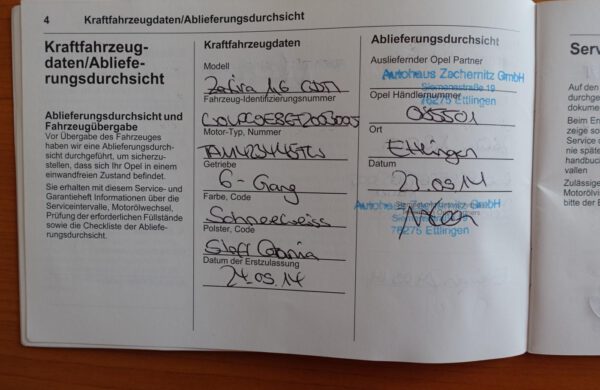 4 Kraftfahrzeugdaten/Ablieferungsdurchsicht
Kraftfahrzeug-
daten/Abliefe-
rungsdurchsicht
Ablieferungsdurchsicht und
Fahrzeugübergabe
Vor Übergabe des Fahrzeuges
haben wir eine Ablieferungsdurch-
sicht durchgeführt, um sicherzu-
stellen, dass sich Ihr Opel in einem
einwandfreien Zustand befindet.
Sie erhalten mit diesem Service- und
Garantieheft Informationen über die
Serviceintervalle, Motorölwechsel,
Prüfung der erforderlichen Füllstände
sowie die Checkliste der Ablieferungsdurchsicht.
Kraftfahrzeugdaten
Modell
Zafira 1.6 CDTI
Fahrzeug-Identifizierungsnummer
Motor-Typ, Nummer
Getriebe
6-Gang
Farbe, Code
Schneeweiss
Polster, Code
Stoff
Datum der Erstzulassung
24.09.14
Ablieferungsdurchsicht
Ausliefernder Opel Partner
Autohaus Zachernitz GmbH
Siemensstraße 19
76275 Ettlingen
Opel Händlernummer
Ort
Ettlingen
Datum
23.09.14
Autohaus Zachernitz GmbH
76275 Ettlingen
Serv
Auf den
durchge
dokume
Beim En
zeige so
Service d
nie späte
handbuch
vallen
Zulässige
Motorölvi
bitte der B